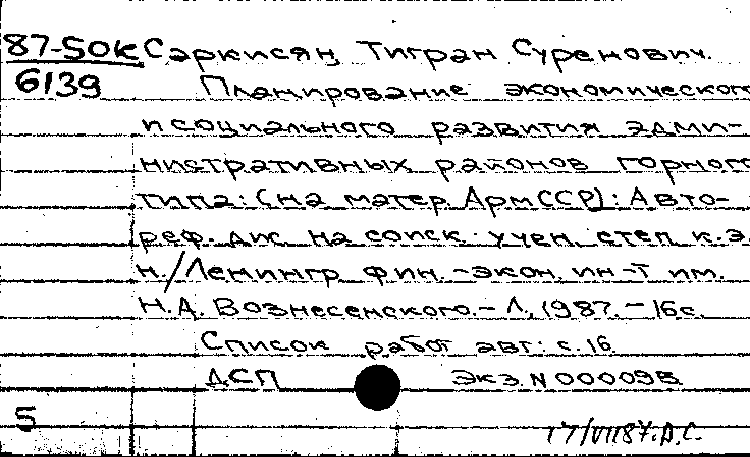 87-50к Саркисян Тигран Суренович.
6139 Планирование экономического
и социального развития адми-
нистративных районов горного
типа: (на матер. АрмССР): Авто-
реф. дис. на соиск. учен. степ. к.э.
н./Ленингр. фин.-экон. ин-т им.
Н.А. Вознесенского.- Л., 1987.-16с.
Список работ авт.: с.16
ДСП Экз. N 000098
5
17/VII87.